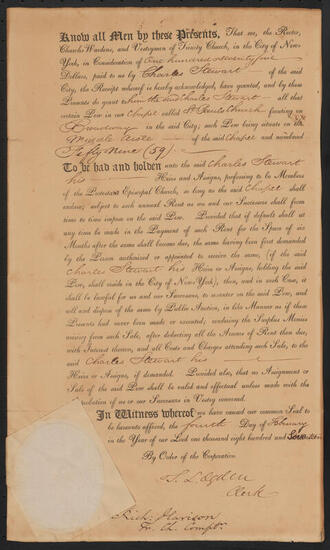 Know all Men by these Presents, That we, the Rector,
Church Wardens, and Vestrymen of Trinity Church, in the City of New-
York, in Consideration of One hundred & seventy five
Dollars, paid to us by Charles Stewart of the said
City, the Receipt whereof is hereby acknowledged, have granted, and by these
Presents do grant unto the said Charles Stewart all that
certain Pew in our Chapel called St Pauls Church fronting on
Broadway in the said City; such Pew being situate in the
Middle Aisle of the said Chapel and numbered
Fifty Nine (59)
To be had and holden unto the said Charles Stewart
his Heirs and Assigns, professing to be Members
of the Protestant Episcopal Church, so long as the said Chapel shall
endure; subject to such annual Rent as we and our Successors shall from
time to time impose on the said Pew. Provided that if default shall at
any time be made in the Payment of such Rent for the Space of six
Months after the same shall become due, the same having been first demanded
by the Person authorised or appointed to receive the same, (if the said
Charles Stewart his Heirs or Assigns, holding the said
Pew, shall reside in the City of New-York), then, and in such Case, it
shall be lawful for us and our Successors, to re-enter on the said Pew, and
sell and dispose of the same by Public Auction, in like Manner as if these
Presents had never been made or executed; rendering the Surplus Monies
arising from such Sale, after deducting all the Arrears of Rent then due,
with Interest thereon, and all Costs and Charges attending such Sale, to the
said Charles Stewart his
Heirs or Assigns, if demanded. Provided also, that no Assignment or
Sale of the said Pew shall be valid and effectual unless made with the
Approbation of us or our Successors in Vestry convened.
In Witness whereof we have caused our common Seal to
be hereunto affixed, the fourth Day of February
in the Year of our Lord one thousand eight hundred and
By Order of the Corporation
Clerk
Rich: Harison
Tr. Ch. Comptr.